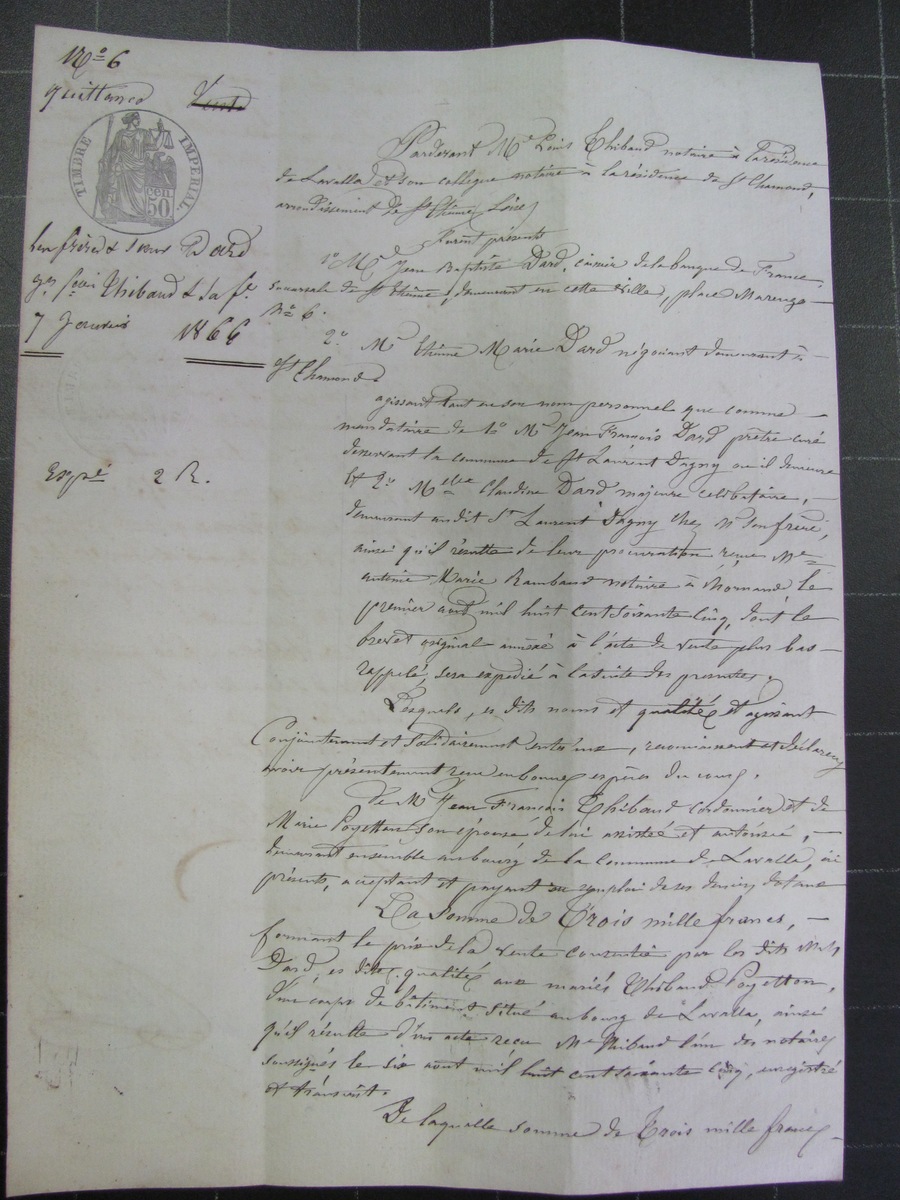 N° 6
quittance Vente
TIMBRE IMPÉRIAL
50 cen
Les frères & sœur Dard
Thibaud & sa fe
7 Janvier 1866
Expé 2 R.
Pardevant Me Louis Thibaud notaire à la résidence
de Lavalla, et son collègue notaire à la résidence de St Chamond,
arrondissement de St Etienne, Loire,
Furent présents
1° Mr Jean Baptiste Dard, caissier de la banque de France
succursale de St Etienne, demeurant en cette ville, place Marengo
N° 6.
2° Mr Etienne Marie Dard négociant demeurant à
St Chamond
agissant tant en son nom personnel que comme
mandataire de 1° Mr Jean François Dard prêtre curé
desservant la commune de St Laurent Dagny où il demeure
Et 2° Melle Claudine Dard majeure célibataire,
demeurant audit St Laurent Dagny chez Mr son frère,
ainsi qu'il résulte de leur procuration reçue Me
antoine Marie Rambaud notaire à Mornand le
premier aout mil huit cent soixante cinq, dont le
brevet original annexé à l'acte de vente plus bas
rappelé, sera expédié à la suite des présentes.
Lesquels, es dits noms et qualités et agissant
Conjointement et solidairement entr'eux, reconnaissent et déclarent
avoir présentement reçu en bonnes espèces du cours.
de Mr Jean François Thibaud cordonnier et de
Marie Poyetton son épouse de lui assistée et autorisée,
demeurant ensemble au bourg de la commune de Lavalla, ici
présents, acceptant et payant en emploi de ses deniers dotaux
La somme de Trois mille francs,
formant le prix de la vente consentie par les dits Mrs
Dard, es dites qualités aux mariés Thibaud Poyetton,
d'un corps de bâtiment situé au bourg de Lavalla, ainsi
qu'il résulte d'un acte reçu Me Thibaud l'un des notaires
soussignés le six aout mil huit cent soixante cinq, enregistré
et transcrit.
De laquelle somme de Trois mille francs